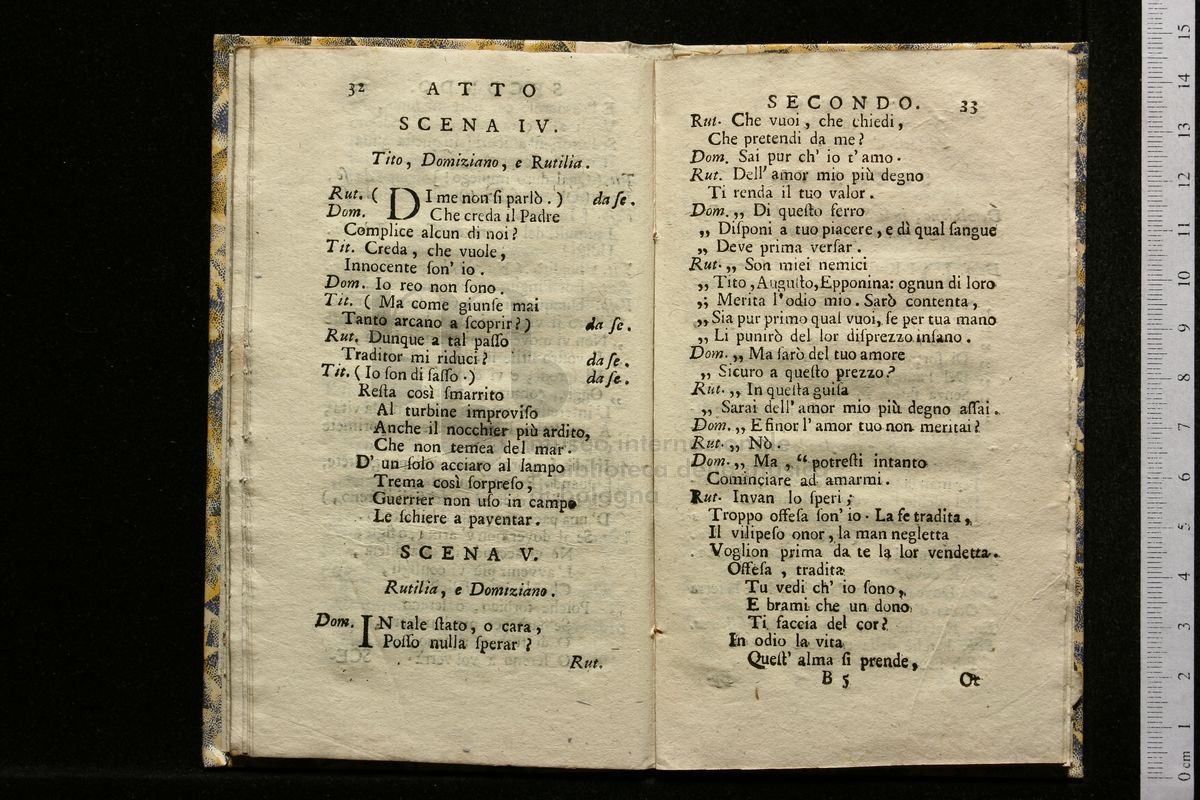 32 ATTO
SCENA IV.
Tito, Domiziano, e Rutilia.
Rut. ( DI me non ſi parlò. ) da ſe.
Dom. Che creda il Padre
Complice alcun di noi?
Tit. Creda, che vuole,
Innocente ſon' io.
Dom. Io reo non ſono.
Tit. ( Ma come giunſe mai
Tanto arcano a ſcoprir? ) da ſe.
Rut. Dunque a tal paſſo
Traditor mi riduci? da ſe.
Tit. ( Io ſon di ſaſſo. ) da ſe.
Reſta così ſmarrito
Al turbine improviſo
Anche il nocchier più ardito,
Che non temea del mar.
D' un ſolo acciaro al lampo
Trema così ſorpreſo,
Guerrier non uſo in campo
Le ſchiere a paventar.
SCENA V.
Rutilia, e Domiziano.
Dom. IN tale ſtato, o cara,
Poſſo nulla ſperar?
Rut.
SECONDO. 33
Rut. Che vuoi, che chiedi,
Che pretendi da me?
Dom. Sai pur ch' io t' amo.
Rut. Dell' amor mio più degno
Ti renda il tuo valor.
Dom. ,, Di queſto ferro
,, Diſponi a tuo piacere, e dì qual ſangue
,, Deve prima verſar.
Rut. ,, Son miei nemici
,, Tito, Auguſto, Epponina: ognun di loro
,, Merita l' odio mio. Sarò contenta,
,, Sia pur primo qual vuoi, ſe per tua mano
,, Li punirò del lor diſprezzo inſano.
Dom. ,, Ma ſarò del tuo amore
,, Sicuro a queſto prezzo?
Rut. ,, In queſta guiſa
,, Sarai dell' amor mio più degno aſſai.
Dom. ,, E finor l' amor tuo non meritai?
Rut. ,, Nò.
Dom. ,, Ma, “ potreſti intanto
Cominciare ad amarmi.
Rut. Invan lo ſperi;
Troppo offeſa ſon' io. La fe tradita,
Il vilipeſo onor, la man negletta
Voglion prima da te la lor vendetta.
Offeſa, tradita
Tu vedi ch' io ſono,
E brami che un dono
Ti faccia del cor?
In odio la vita
Queſt' alma ſi prende,
B 5 Ot
museo internazionale
biblioteca della musica
bologna
0 cm 1 2 3 4 5 6 7 8 9 10 11 12 13 14 15